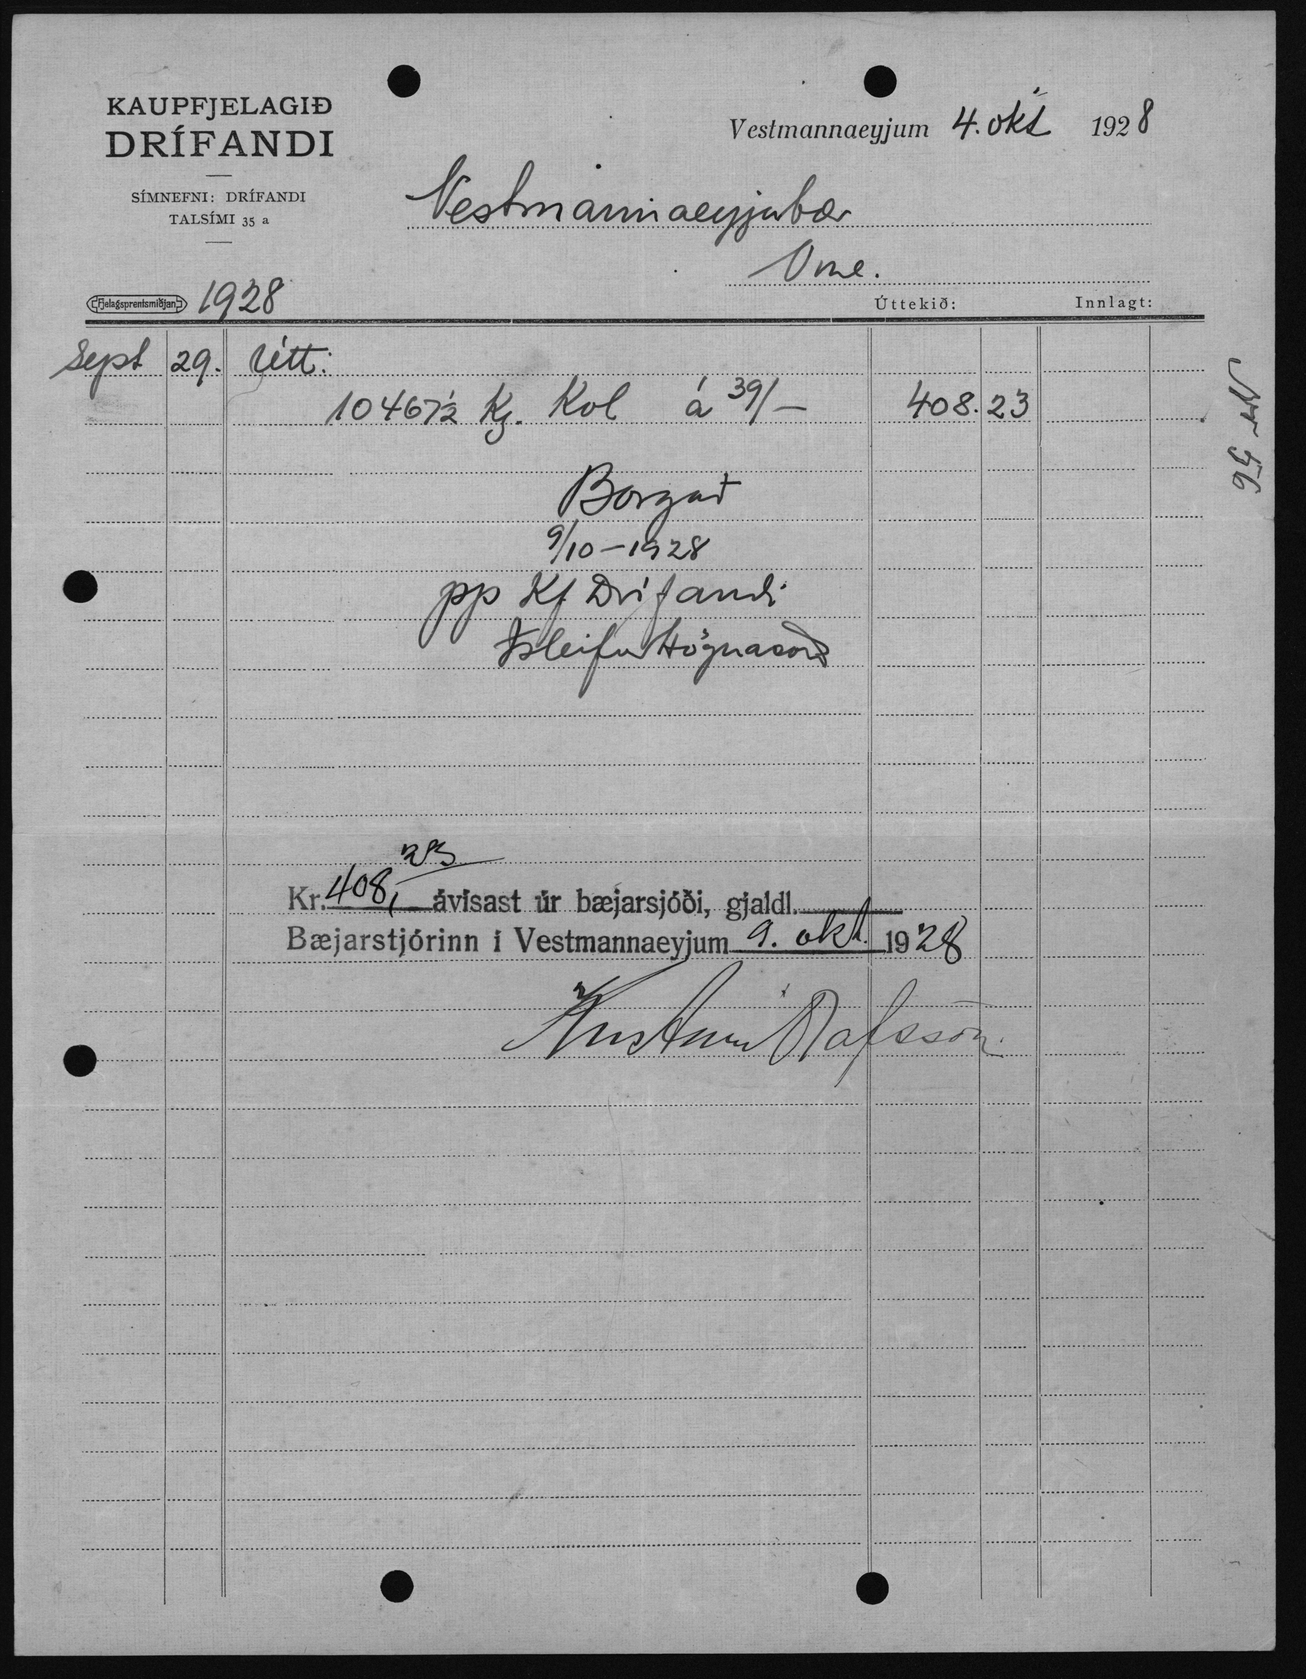 KAUPFJELAGIÐ
DRÍFANDI
SÍMNEFNI: DRÍFANDI
TALSÍMI 35 a
Vestmannaeyjum 4. okt 1928
Vestmannaeyjabær
Vme.
Fjelagsprentsmiðjan 1928
Úttekið: Innlagt:
Sept 29. Útt:
10467½ Kg. Kol á 39/— 408.23
Nr 56
Borgað
9/10 – 1928
pp Kf Drífandi
Ísleifur Högnason
Kr. 408,23 ávísast úr bæjarsjóði, gjaldl.
Bæjarstjórinn í Vestmannaeyjum 9. okt. 1928
Kristinn Ólafsson